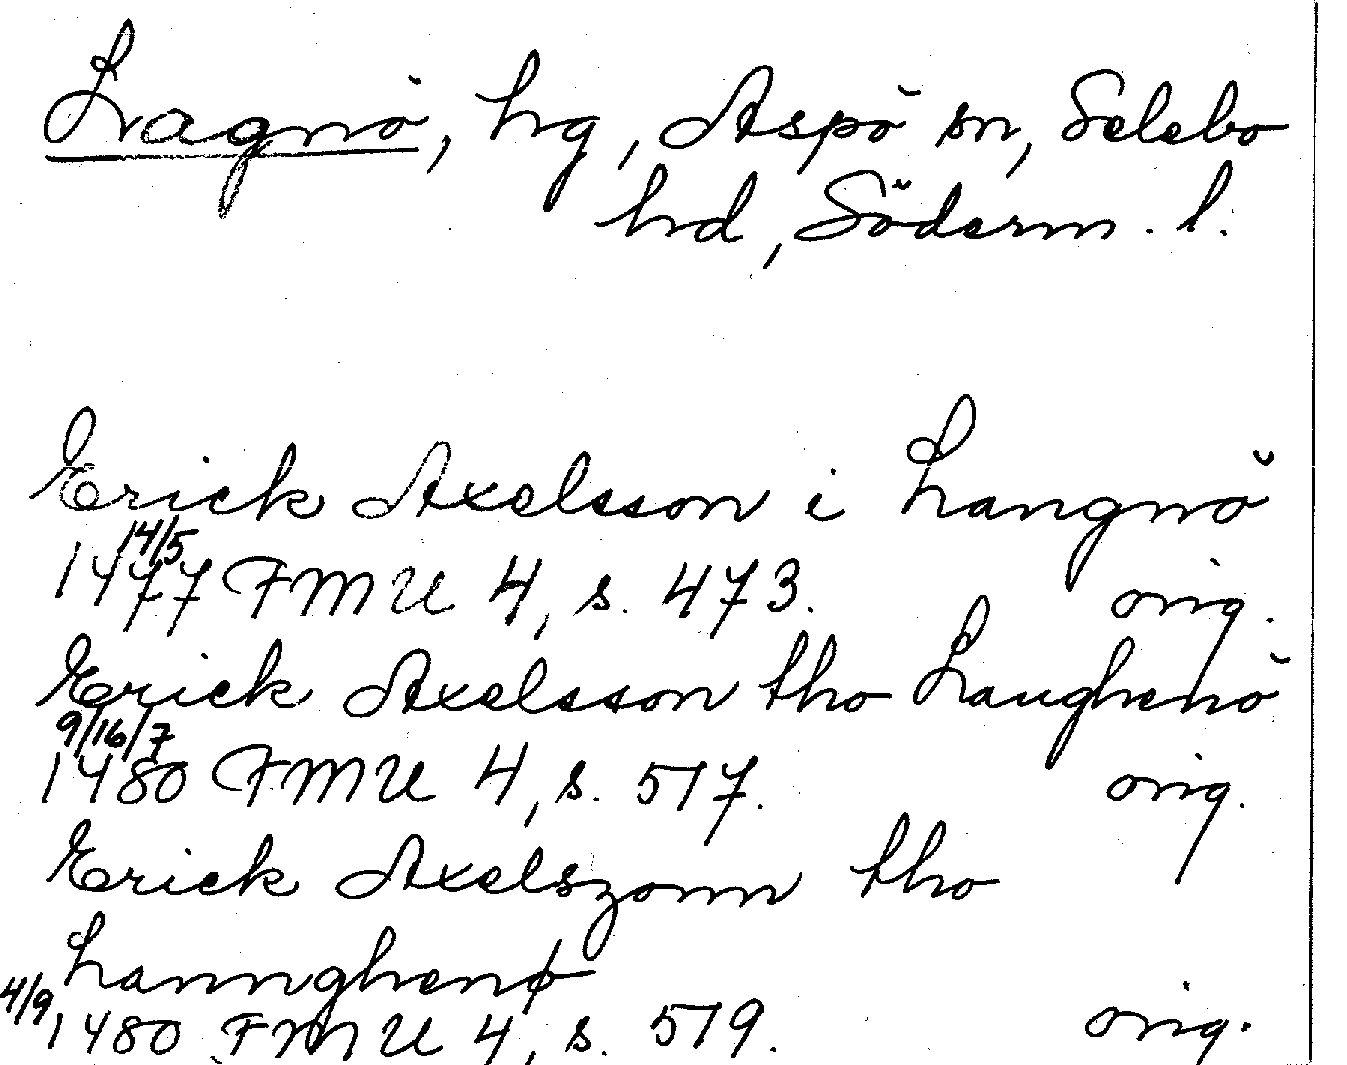 Lagnö, hg, Aspö sn, Selebo
hd, Söderm. l.
Erick Axelsson i Langnö
14/5
1477 FMU 4, s. 473. orig.
Erick Axelsson tho Laughenö
9/16/7
1480 FMU 4, s. 517. orig.
Erick Axelszonn tho
Lannghenø
4/9 1480 FMU 4, s. 519. orig.